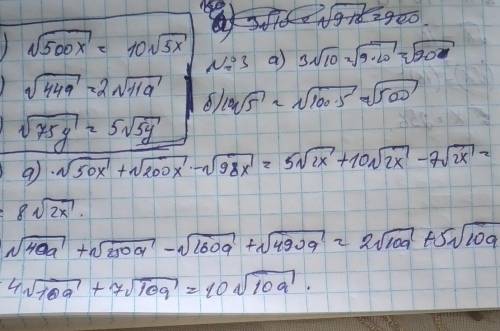 ) √500x = 10√5x
) √44a = 2√11a
) √75y = 5√5y
а) 3√10 = √9·10 = 900.
№3 а) 3√10 = √9·10 = √90
б) 10√5 = √100·5 = √500
) а) √50x + √200x - √98x = 5√2x + 10√2x - 7√2x =
= 8√2x.
√40a + √250a - √160a + √490a = 2√10a + 5√10a
4√10a + 7√10a = 10√10a.